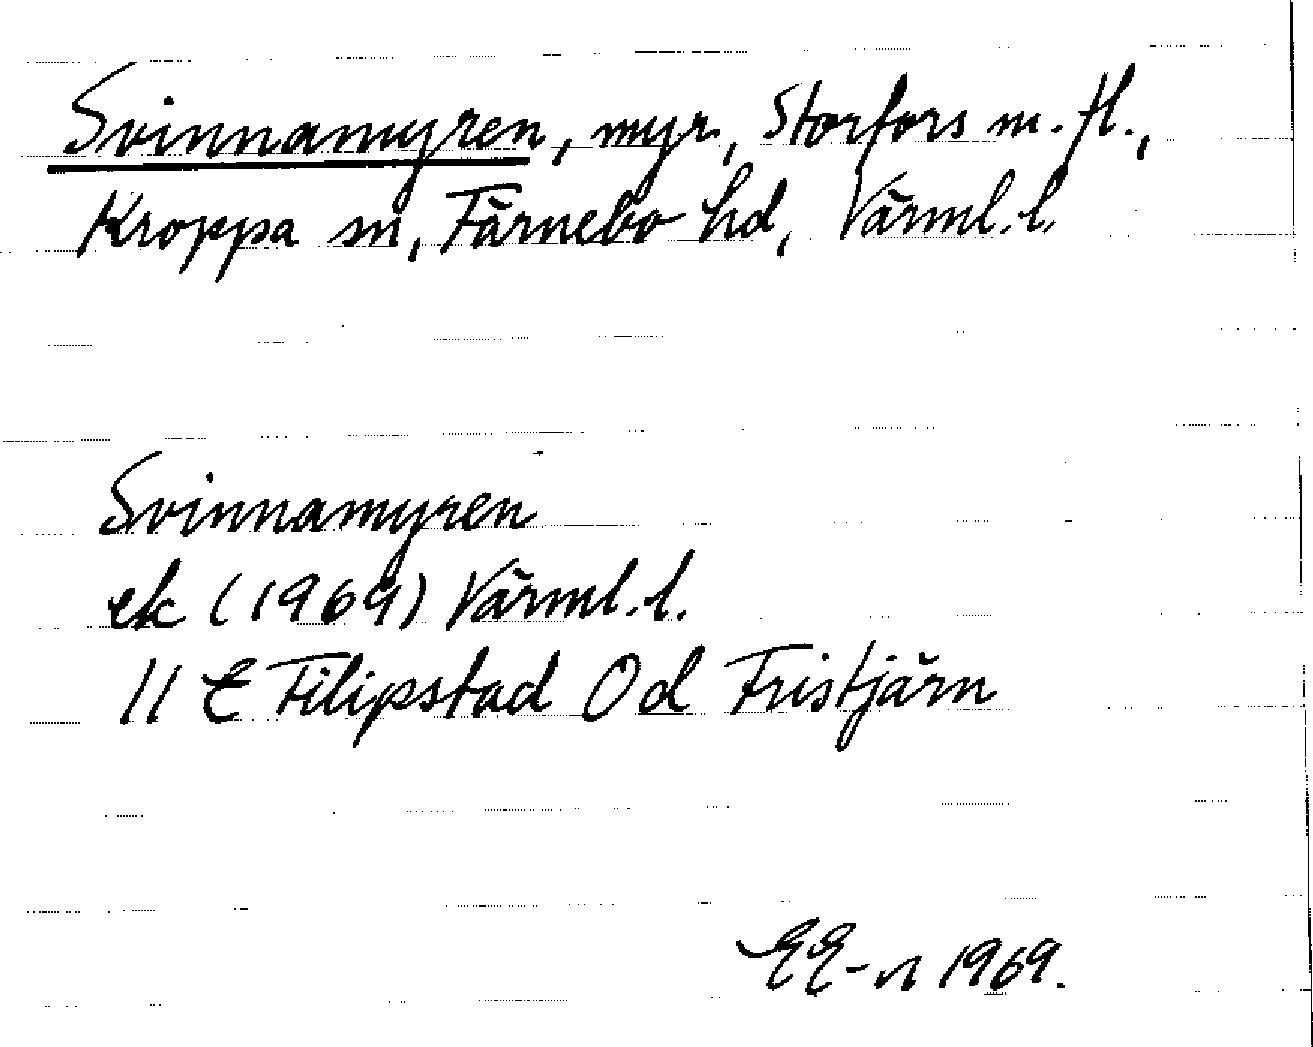 Svinnamyren, myr, Storfors m. fl.,
Kroppa sn, Färnebo hd, Värml. l.
Svinnamyren
ek (1969) Värml. l.
11 E Filipstad Od Fristjärn
EE-n 1969.